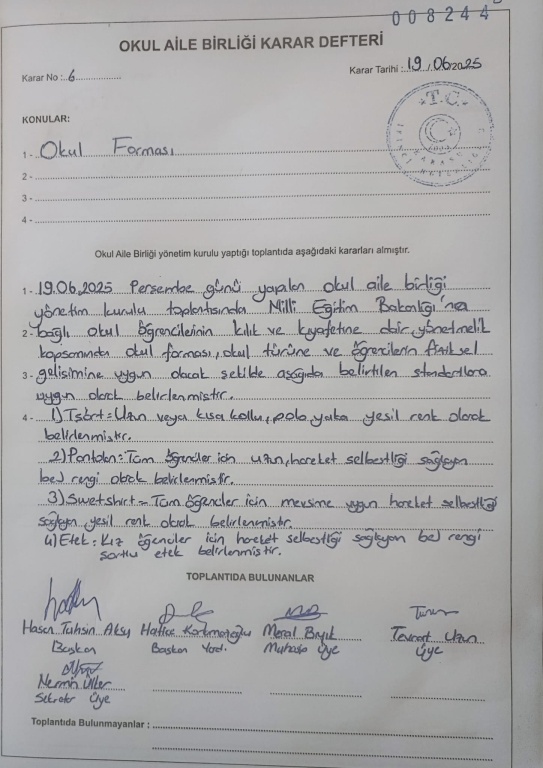 008244
OKUL AİLE BİRLİĞİ KARAR DEFTERİ
Karar No : 6
Karar Tarihi : 19/06/2025
T.C.
KONULAR:
1 - Okul Forması
2 -
3 -
4 -
Okul Aile Birliği yönetim kurulu yaptığı toplantıda aşağıdaki kararları almıştır.
1 - 19.06.2025 Perşembe günü yapılan okul aile birliği
yönetim kurulu toplantısında Milli Eğitim Bakanlığı'na
2 - bağlı okul öğrencilerinin kılık ve kıyafetine dair yönetmelik
kapsamında okul forması, okul türüne ve öğrencilerin fiziksel
3 - gelişimine uygun olacak şekilde aşağıda belirtilen standartlara
uygun olarak belirlenmiştir.
4 - 1) Tşört = Uzun veya kısa kollu, polo yaka yeşil renk olarak
belirlenmiştir.
2) Pantolon = Tüm öğrenciler için uzun, hareket selbestliği sağlayan
bej rengi olarak belirlenmiştir.
3) Swetshirt = Tüm öğrenciler için mevsime uygun hareket selbestliği
sağlayan, yeşil renk olarak belirlenmiştir.
4) Etek : Kız öğrenciler için hareket selbestliği sağlayan bej rengi
şortlu etek belirlenmiştir.
TOPLANTIDA BULUNANLAR
Hasan Tahsin Aksy Hatice Meral Bıyık Uzan
Başkan Başkan Yard. Muhasip Üye Üye
Nermin Ülker
Sekreter Üye
Toplantıda Bulunmayanlar :